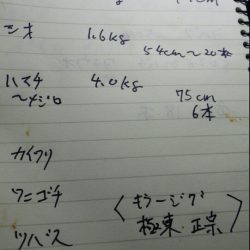 シオ 1.6kg
54cm〜20本
ハマチ 4.0kg
〜メジロ 75cm
6本
カイワリ
ワニゴチ 〈キラージグ
ツバス 極東.正宗〉